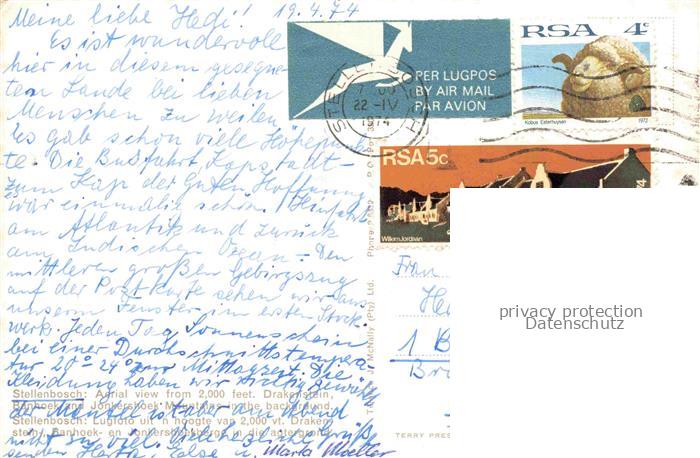 Meine liebe Hedi! 19.4.74
Es ist wundervoll
hier in diesem gesegne-
ten Lande bei lieben
Menschen zu weilen.
Es gab schon viele Höhepunk-
te. Die Busfahrt Kapstadt-
zum Kap der Guten Hoffnung
war einmalig schön. Hinfahrt
am Atlantik und zurück
am Indischen Ozean. Den
mittleren großen Gebirgszug
auf der Postkarte sehen wir aus
unserem Fenster im ersten Stock
werk. Jeden Tag Sonnenschein
bei einer Durchschnittstempera-
tur 20°-24° zur Mittagszeit. Die
Kleidung haben wir richtig gewählt
der Mantel ist aber am Abend
nicht zu viel. Viele herzliche Grüße
senden Herta, Else u. Marta Moeller
Stellenbosch: Aerial view from 2,000 feet. Drakenstein,
Banhoek and Jonkershoek Mountains in the background.
Stellenbosch: Lugfoto uit 'n hoogte van 2,000 vt. Draken-
stein, Banhoek- en Jonkershoekberge in die agtergrond.
PER LUGPOS
BY AIR MAIL
PAR AVION
RSA 4c
Kobus Esterhuysen 1972
STELLENBOSCH
22-IV
1974
RSA 5c
Willem Jordaan
McNally (Pty) Ltd.
Frau
He
1 B
Br
TERRY PRES
privacy protection
Datenschutz